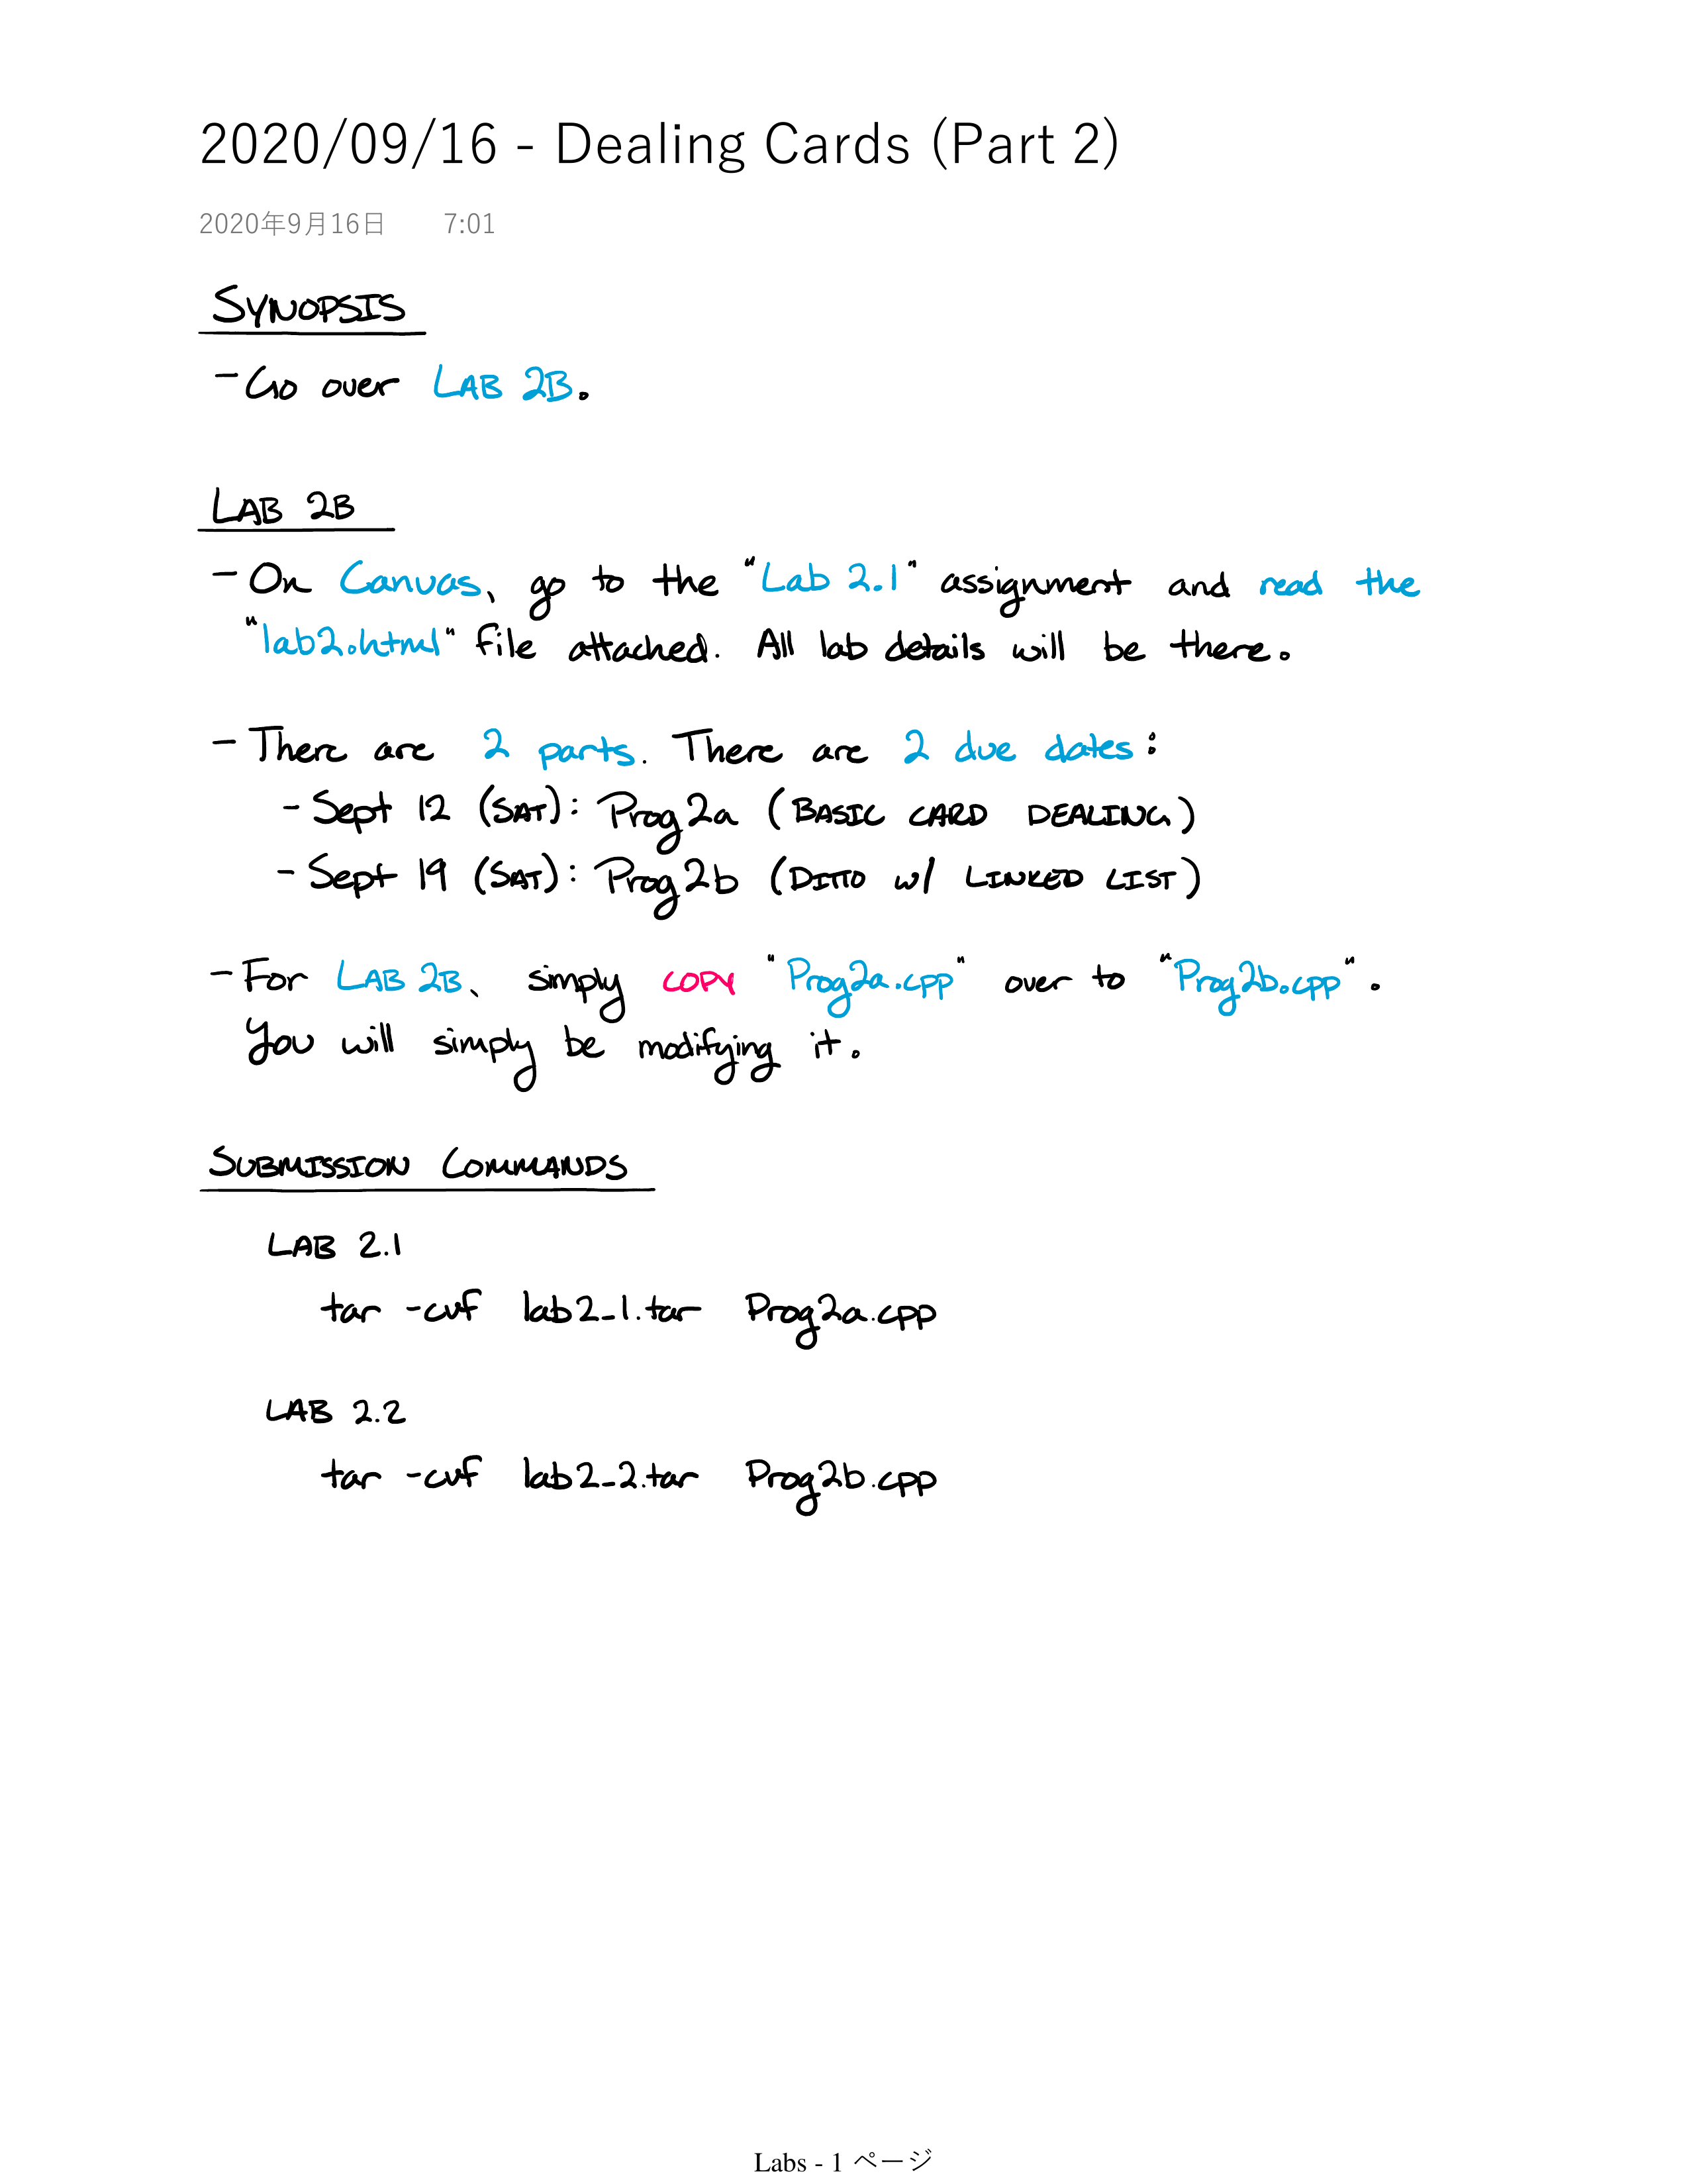 2020/09/16 - Dealing Cards (Part 2)
2020年9月16日 7:01
SYNOPSIS
- Go over LAB 2B.
LAB 2B
- On Canvas, go to the "Lab 2.1" assignment and read the
"lab2.html" file attached. All lab details will be there.
- There are 2 parts. There are 2 due dates:
- Sept 12 (SAT): Prog2a (BASIC CARD DEALING)
- Sept 19 (SAT): Prog2b (DITTO w/ LINKED LIST)
- For LAB 2B, simply COPY "Prog2a.cpp" over to "Prog2b.cpp".
You will simply be modifying it.
SUBMISSION COMMANDS
LAB 2.1
tar -cvf lab2_1.tar Prog2a.cpp
LAB 2.2
tar -cvf lab2_2.tar Prog2b.cpp
Labs - 1 ページ